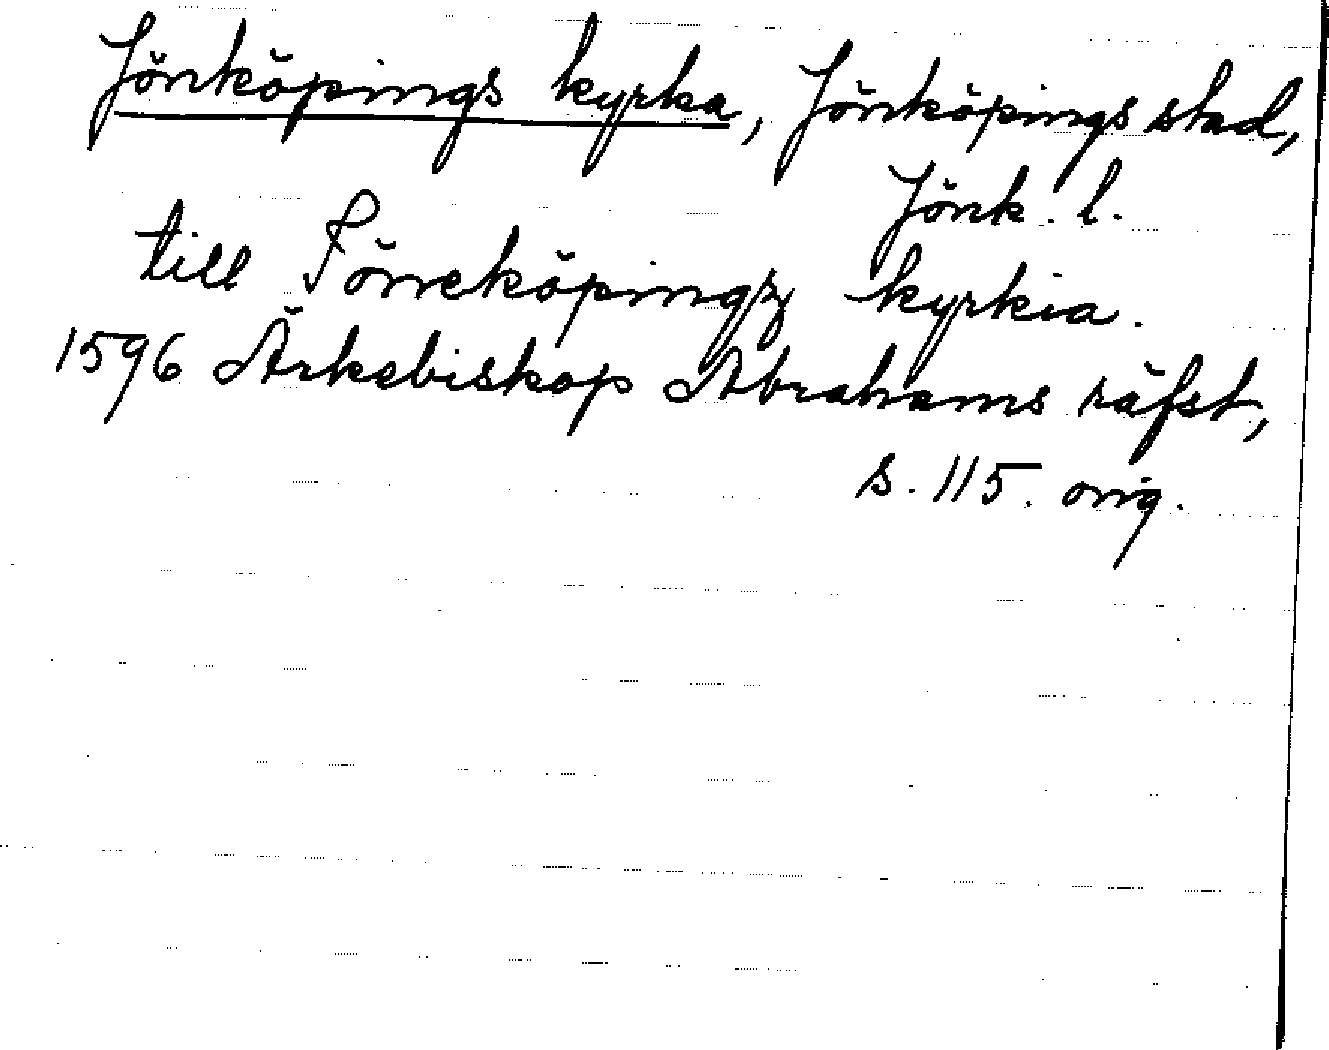 Jönköpings kyrka, Jönköpings stad,
Jönk. l.
till Jöneköpingz kyrkia.
1596 Ärkebiskop Abrahams räfst,
s. 115. orig.